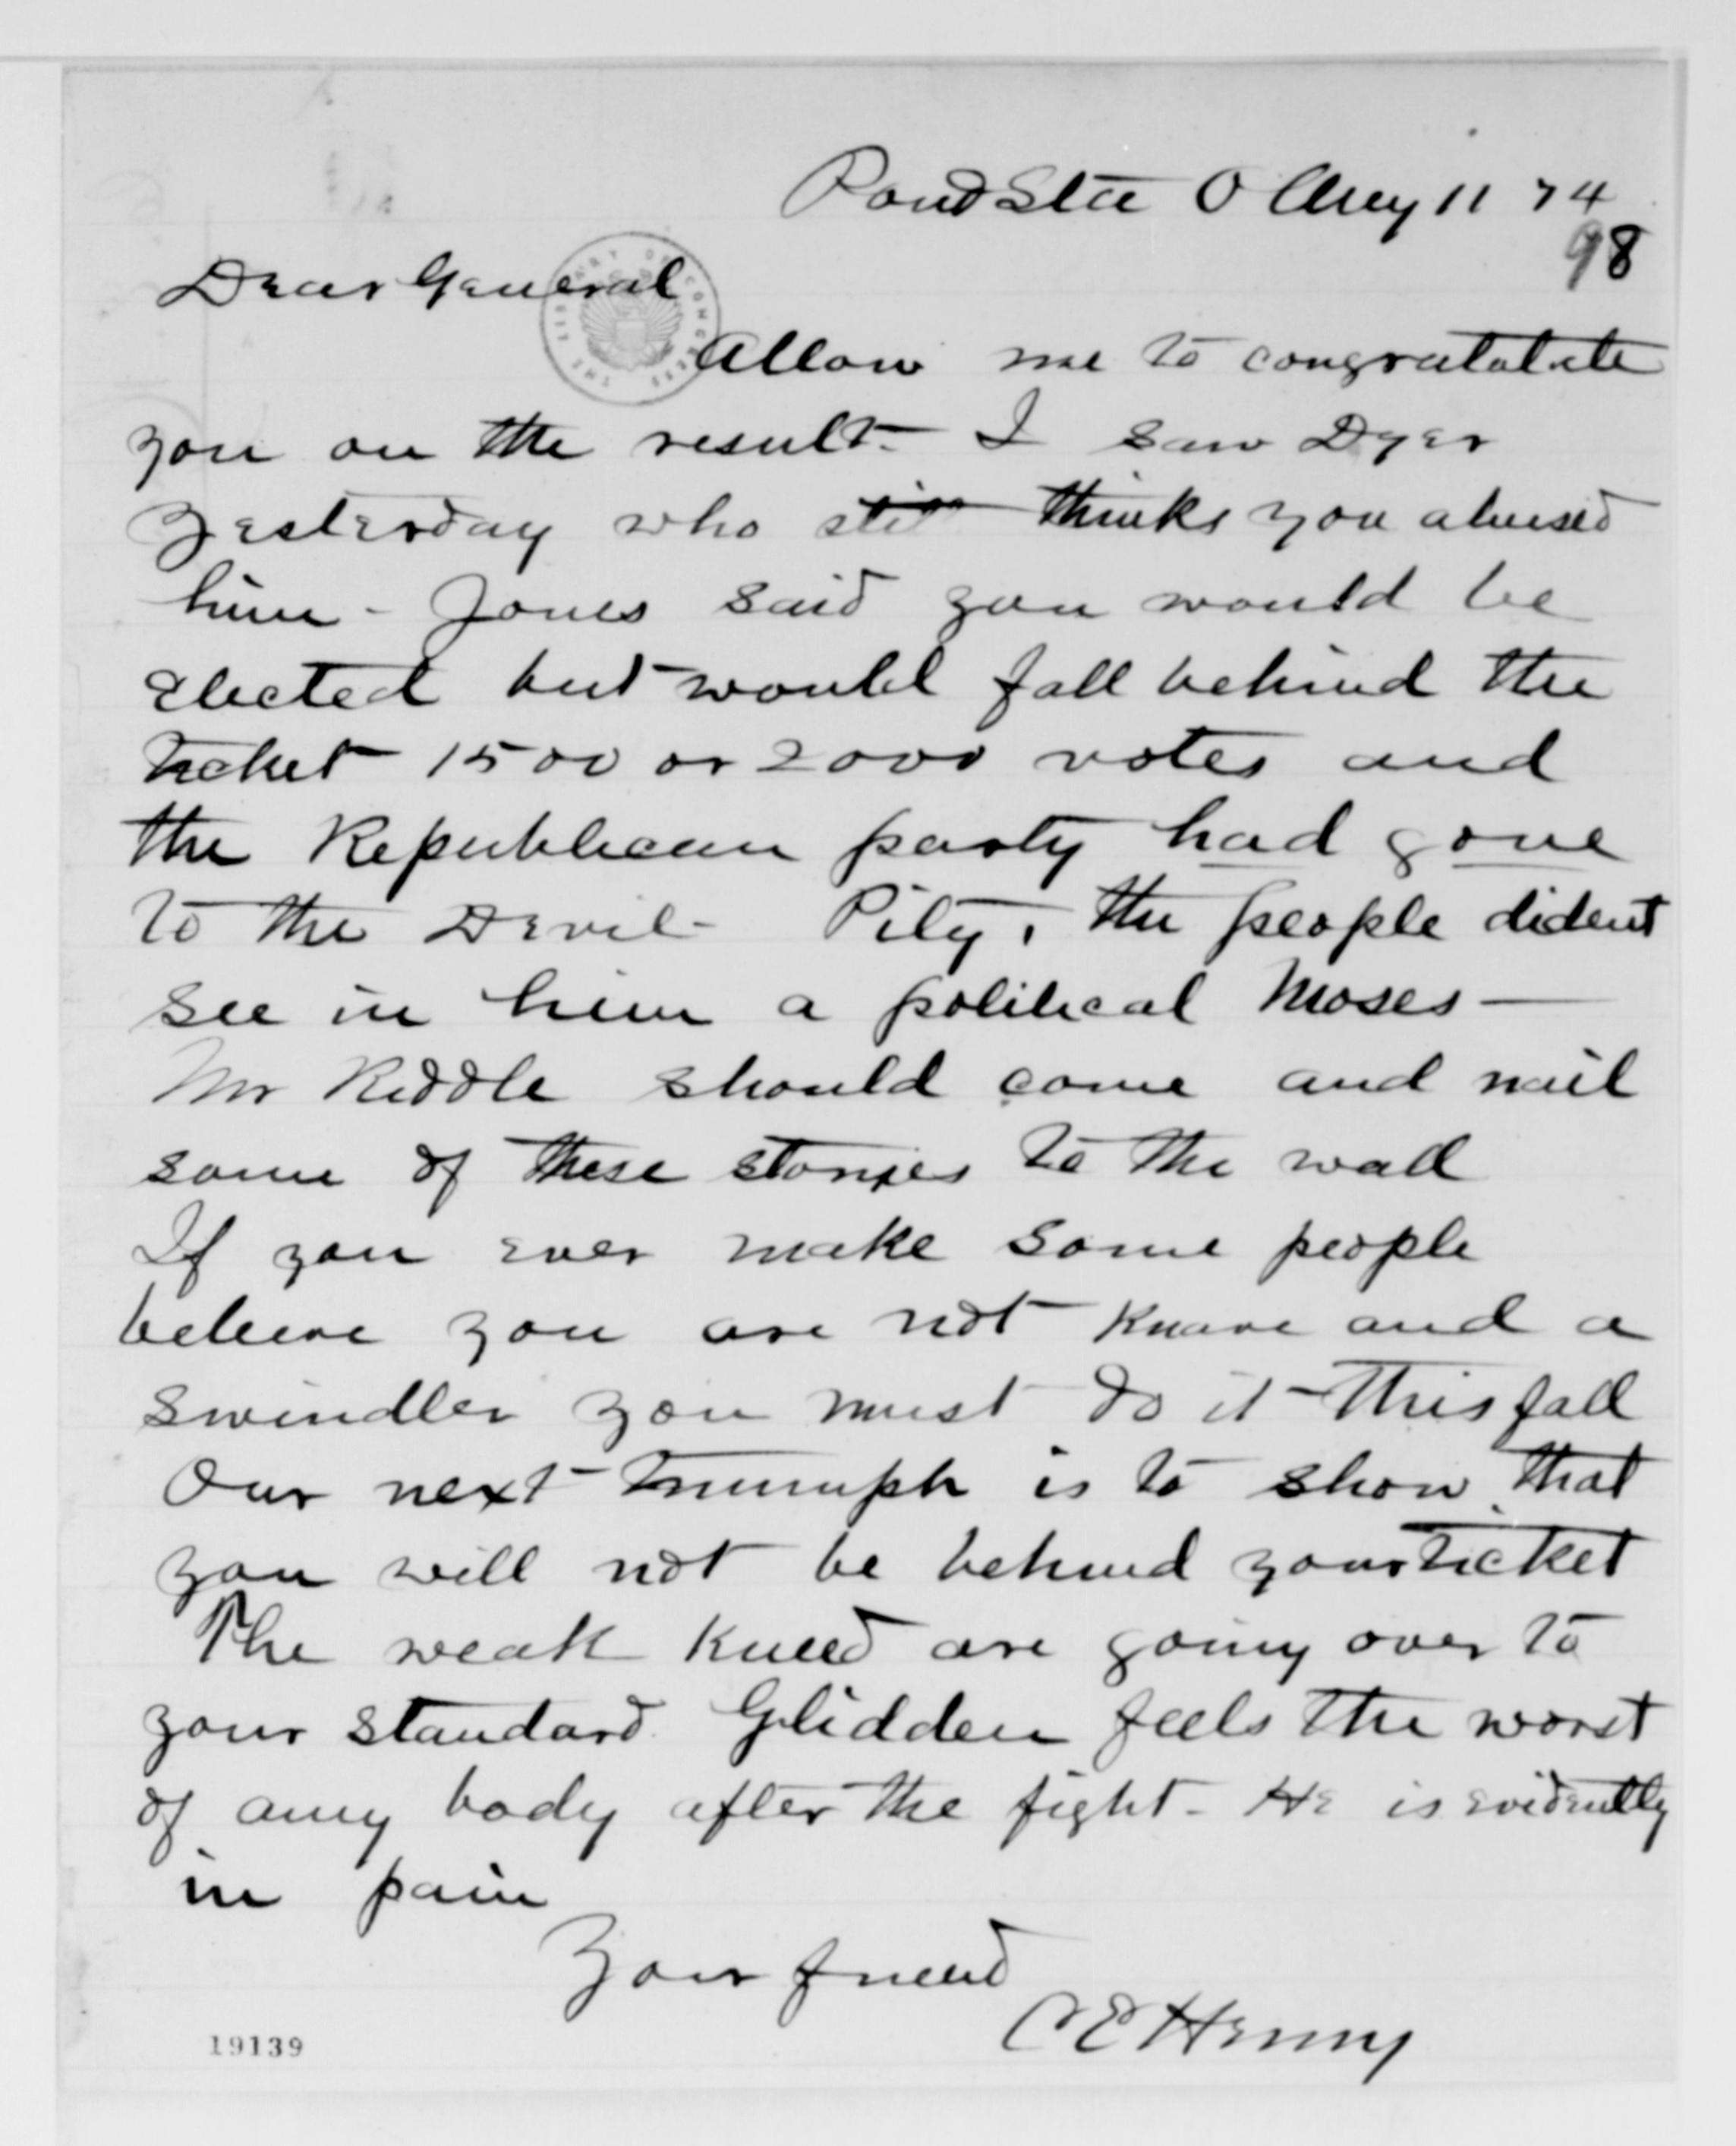 Pond Sta O Aug 11 74
98
Dear General
THE LIBRARY OF CONGRESS
Allow me to congratulate
you on the result - I saw Dyer
yesterday who still thinks you abused
him - Jones said you would be
elected but would fall behind the
ticket 1500 or 2000 votes and
the Republican party had gone
to the Devil - Pity, the people dident
see in him a political Moses —
Mr Riddle should come and nail
some of these stories to the wall
If you ever make some people
believe you are not knave and a
swindler you must do it this fall
Our next triumph is to show that
you will not be behind your ticket
The weak kneed are going over to
your standard. Glidden feels the worst
of any body after the fight - He is evidently
in pain
Your friend
C E Henry
19139